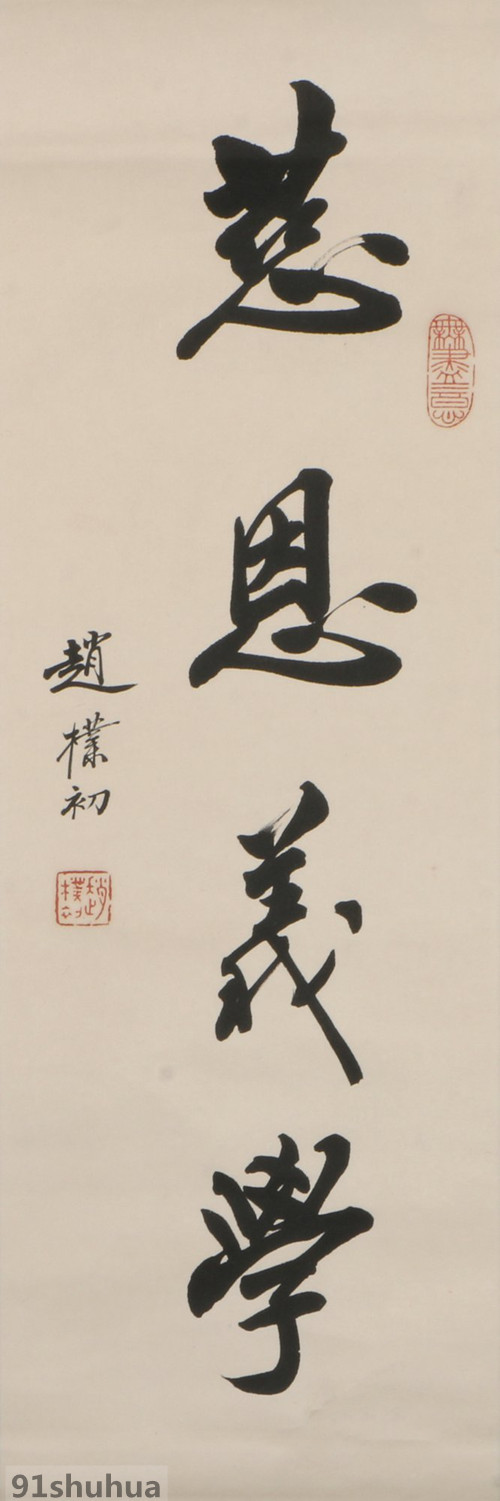 慈恩義學
趙樸初
無盡意
趙樸初
91shuhua